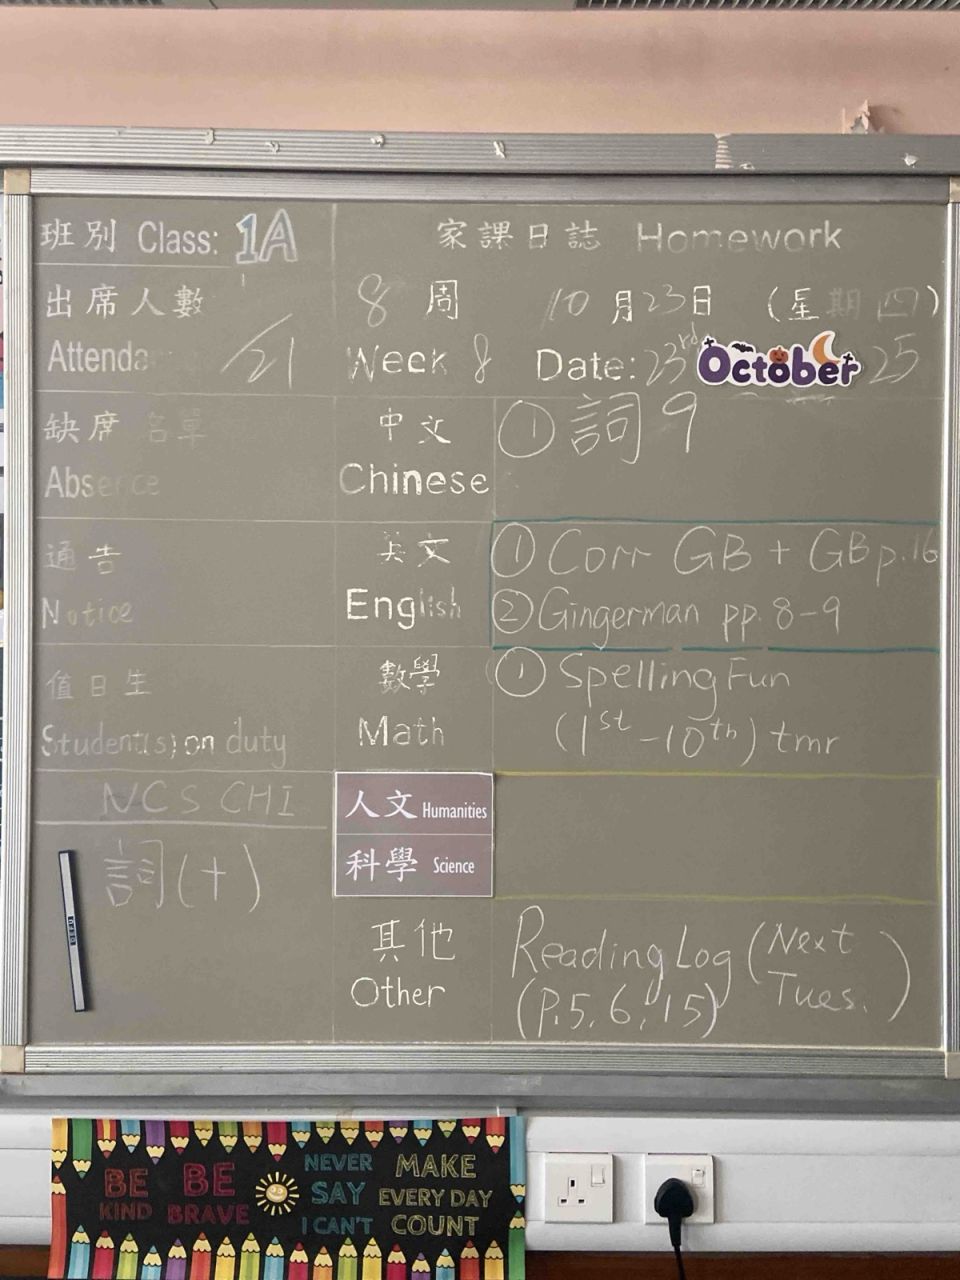 班別 Class: 1A
出席人數
Attenda /21
缺席名單
Absence
通告
Notice
值日生
Student(s) on duty
NCS CHI
詞(十)
家課日誌 Homework
8 周 10 月 23 日 (星期四)
Week 8 Date: 23rd October 25
中文
Chinese
① 詞 9
英文
English
① Corr GB + GB p.16
② Gingerman pp. 8-9
數學
Math
① Spelling Fun
(1st - 10th) tmr
人文 Humanities
科學 Science
其他
Other
Reading Log (Next Tues.)
(P.5, 6, 15)
BE KIND
BE BRAVE
NEVER SAY I CAN'T
MAKE EVERY DAY COUNT